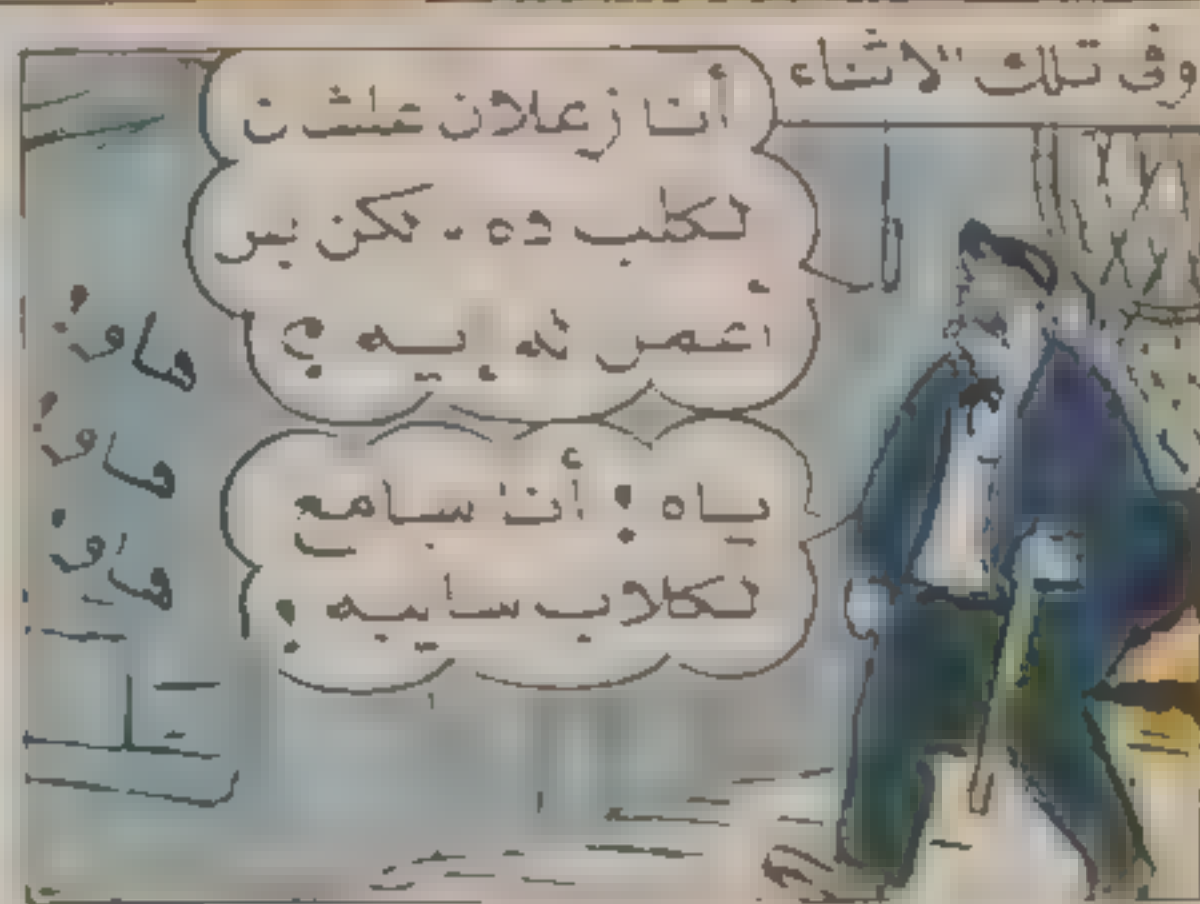 وفى تلك الاثناء
أنا زعلان علشان
لكلب ده . لكن بس
أعمل له إيه ؟
ياه ! أنا سامع
لكلاب سايبه !
هاو !
هاو !
هاو !